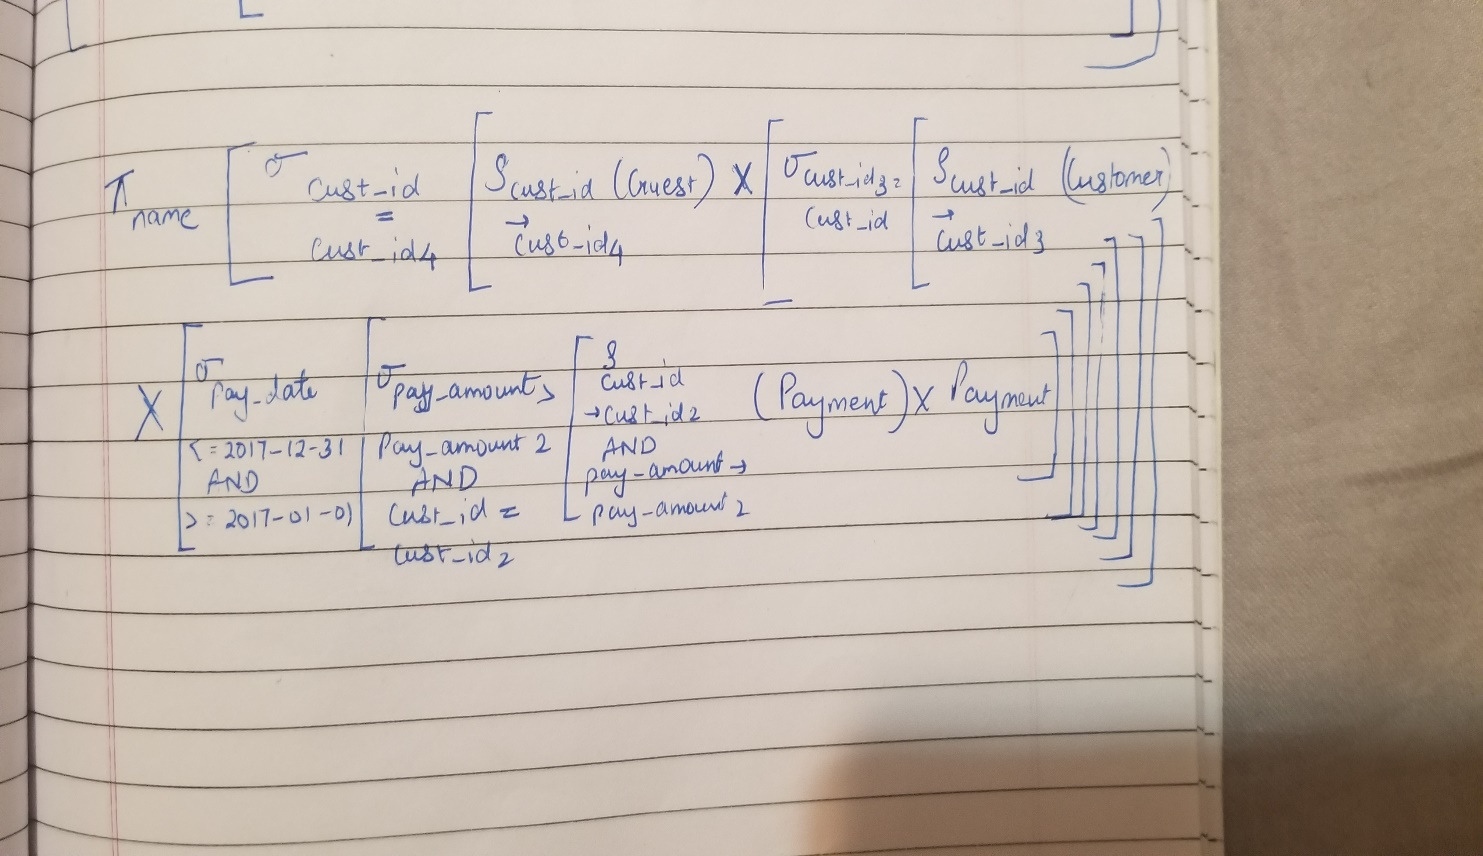 π name [ σ cust_id = cust_id4 [ ρ cust_id → cust_id4 (Guest) X [ σ cust_id3 = cust_id [ ρ cust_id → cust_id3 (Customer)
X [ σ pay_date <= 2017-12-31 AND >= 2017-01-01 [ σ pay_amount > pay_amount 2 AND cust_id = cust_id2 [ ρ cust_id → cust_id2 AND pay-amount → pay-amount 2 (Payment) X Payment ] ] ] ] ] ]